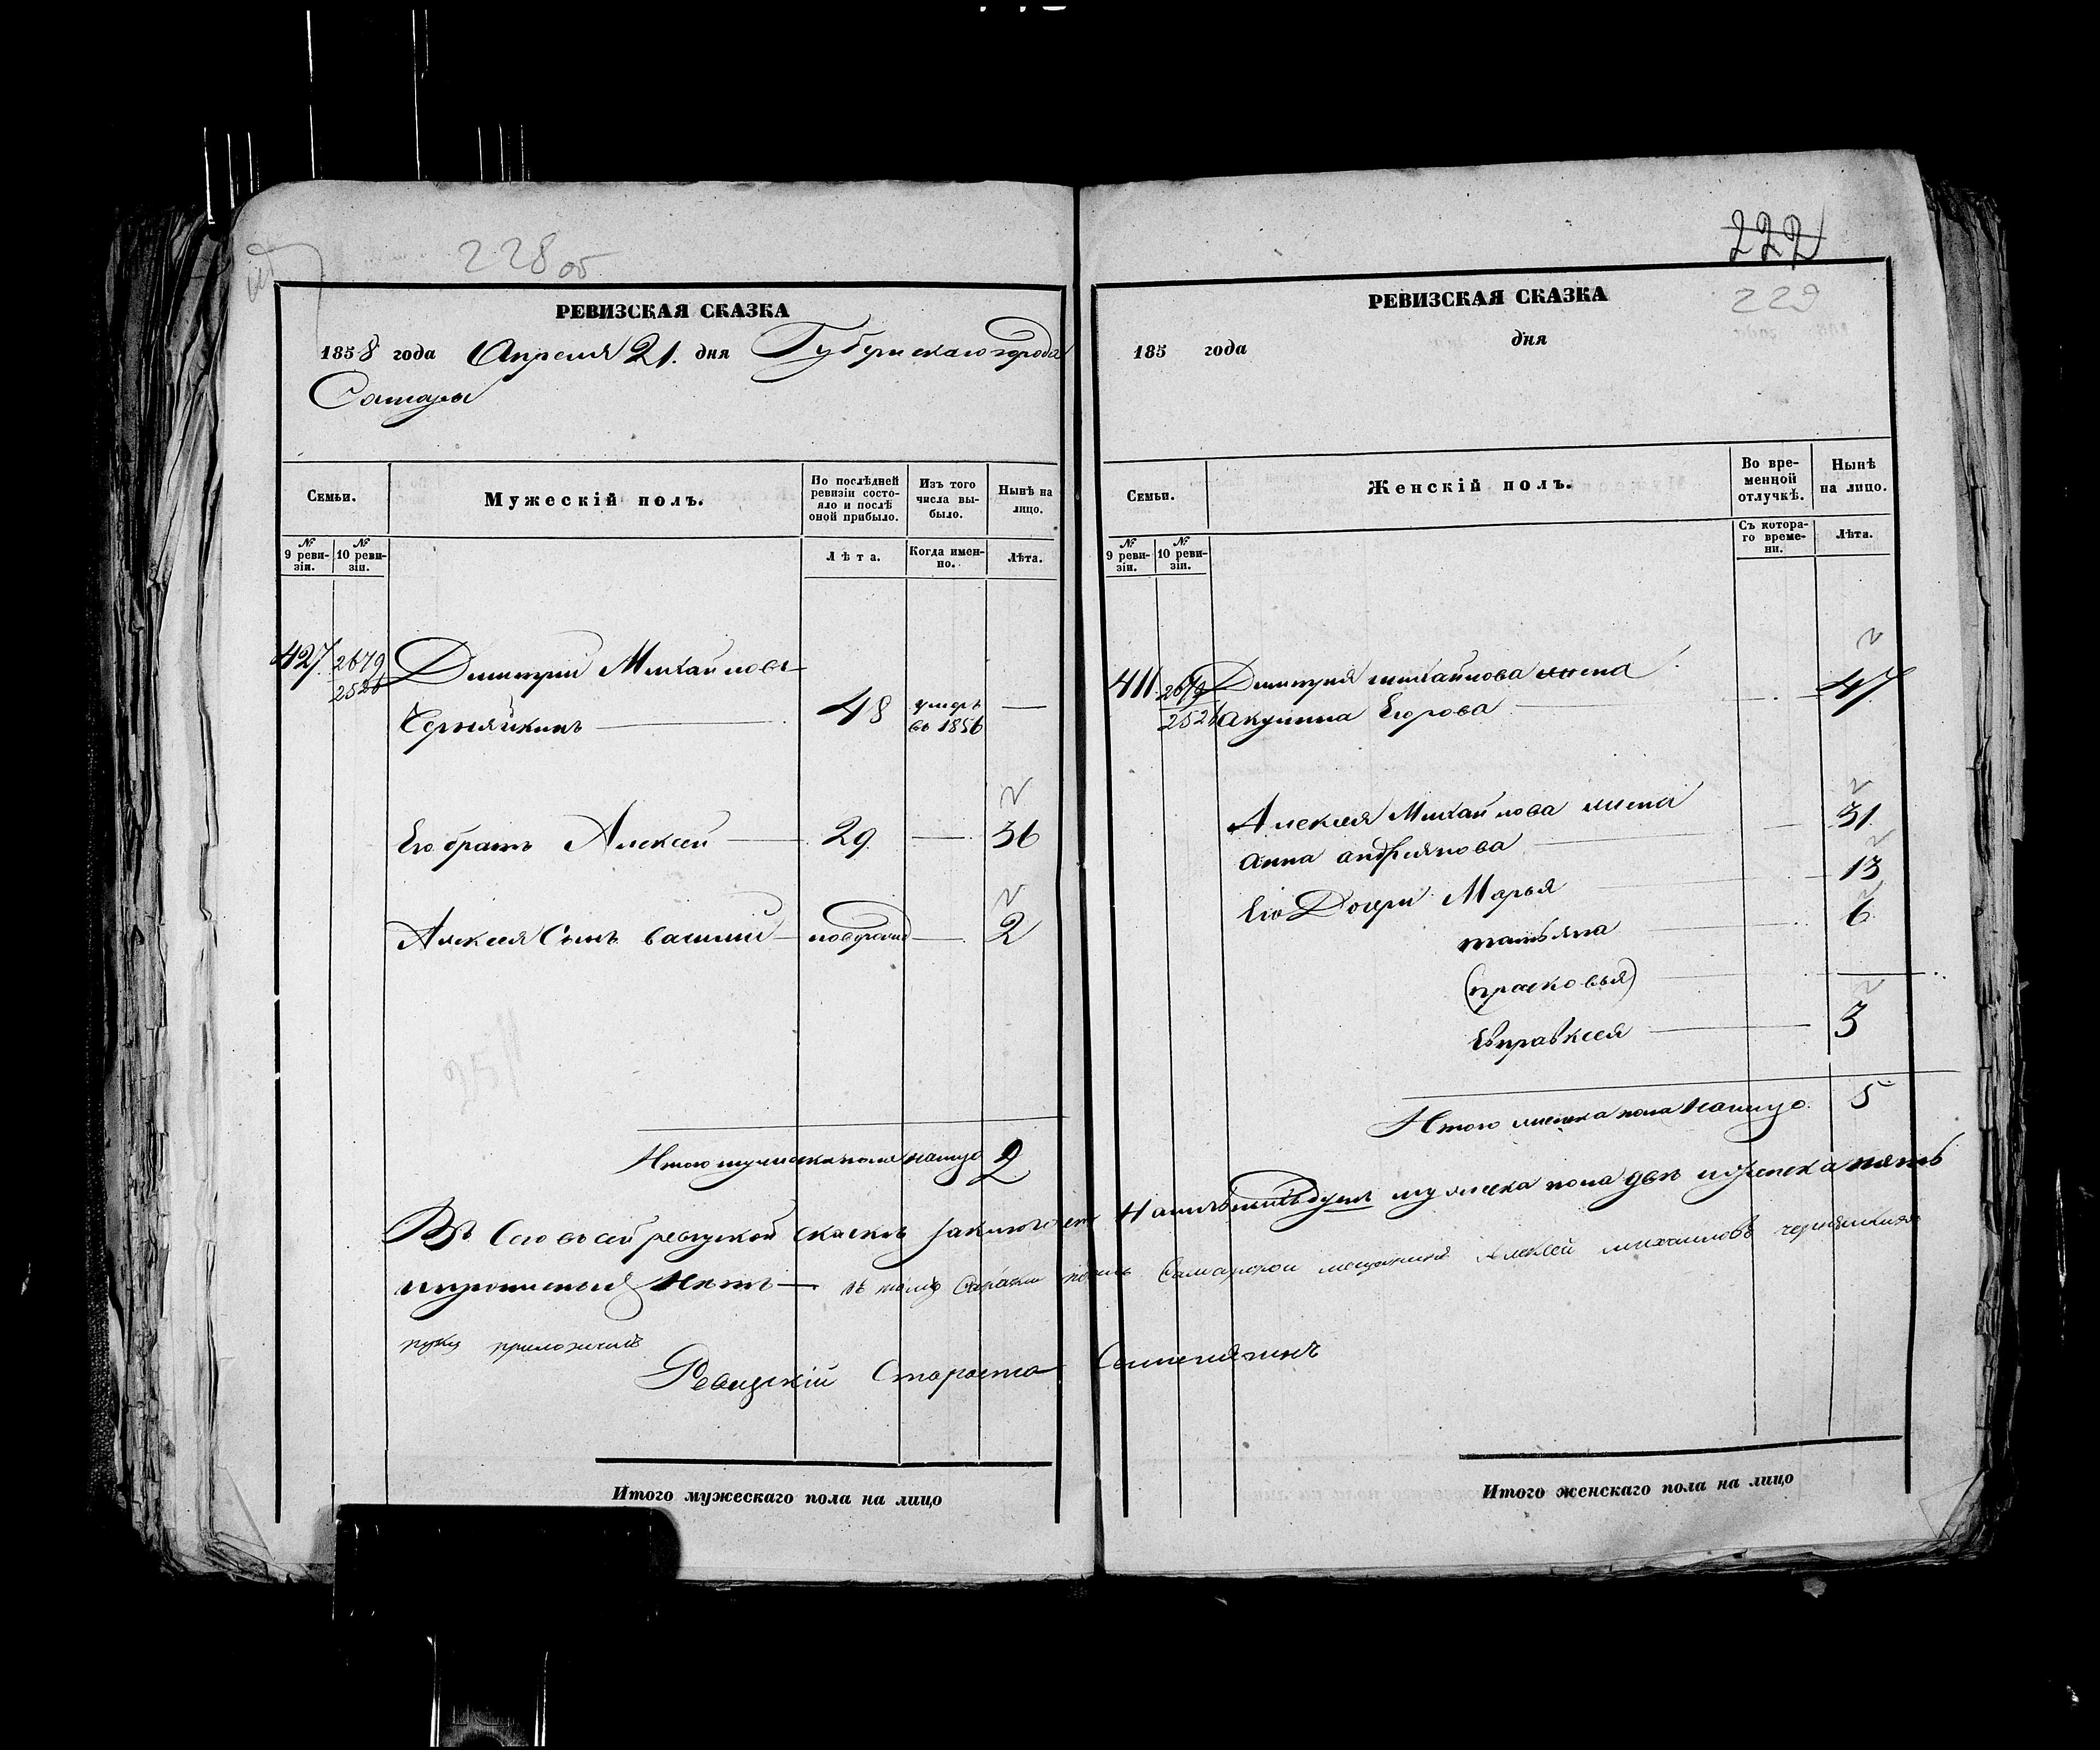 228 об
РЕВИЗСКАЯ СКАЗКА
1858 года Апреля 21. дня Губернскаго города
Самары
Семьи.
Мужескій полъ.
По послѣдней ревизіи состояло и послѣ оной прибыло.
Изъ того числа выбыло.
Нынѣ на лицо.
№ 9 ревизіи.
№ 10 ревизіи.
Лѣта.
Когда именно.
Лѣта.
427 2679 Димитрий Михайловъ
2526
Черняйкинъ 48 умеръ въ 1856 —
Его братъ Алексей — 29 — 36
Алексея Сынъ василий — 2
Итого мужеска пола налицо 2
222
229
РЕВИЗСКАЯ СКАЗКА
185 года дня
Семьи.
Женскій полъ.
Во временной отлучкѣ.
Нынѣ на лицо.
№ 9 ревизіи.
№ 10 ревизіи.
Съ котораго времени.
Лѣта.
411 2679 Димитрия михайлова жена 47
2526 акулина Егорова
Алексея Михайлова жена 31
анна андреянова
Его Дочери Марья 13
татьяна 6
(прасковья) —
Евпраксея 3
Итого женска пола налицо 5
Въ Сей ревизской скаске заключаетъ мужеска пола две и женска пять
и прописныхъ нетъ — Самарской мещанинъ Алексей михаиловъ черняйкинъ
руку приложилъ
Ревизскій Староста
Итого мужескаго пола на лицо
Итого женскаго пола на лицо